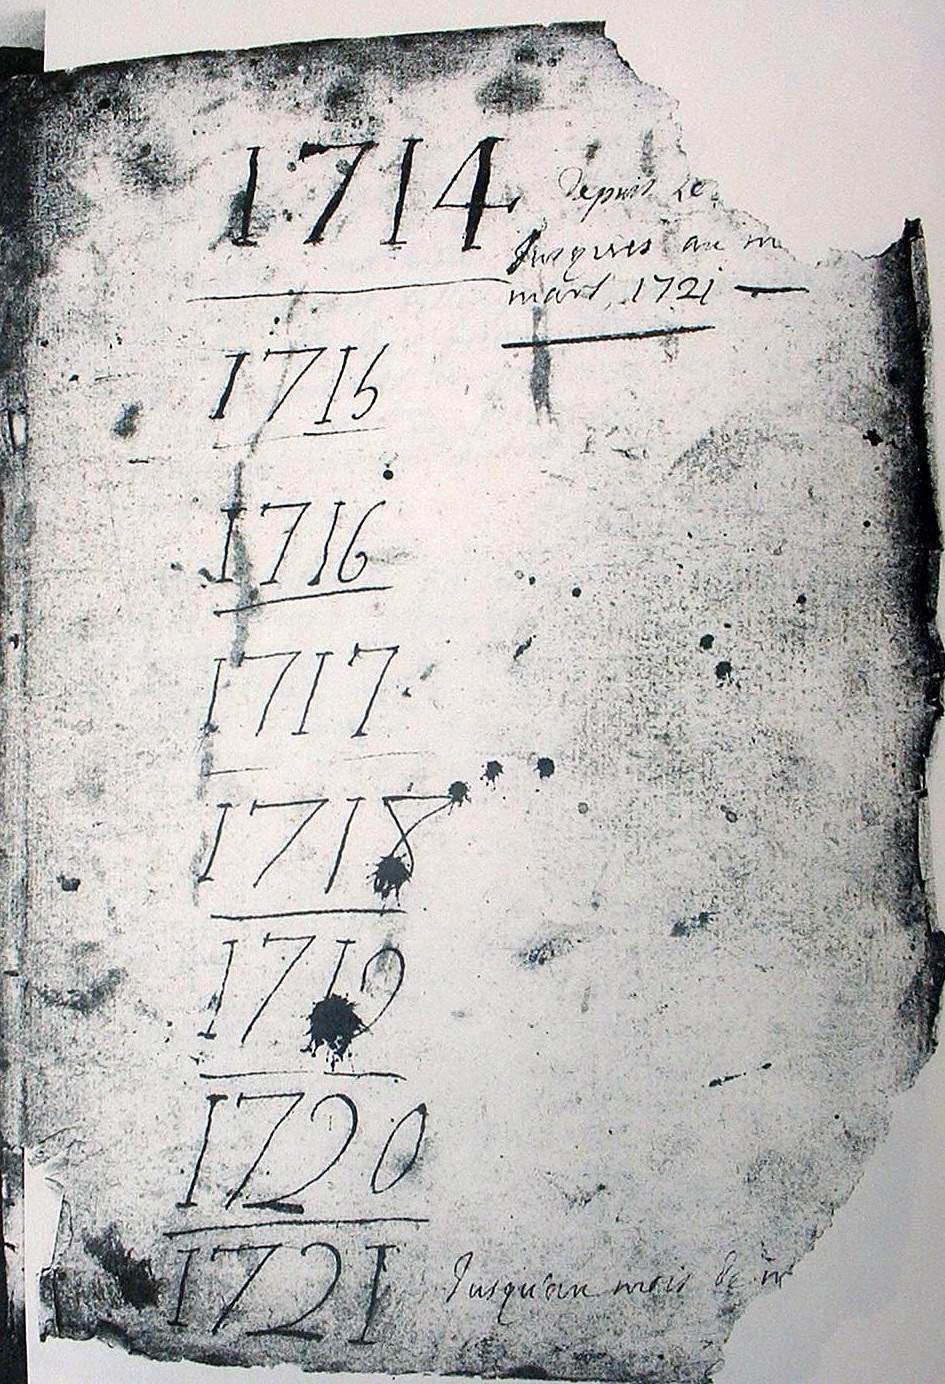 1714 Depuis Le
Jusques au m
mars 1721
1715
1716
1717
1718
1719
1720
1721 Jusqu'au mois de m